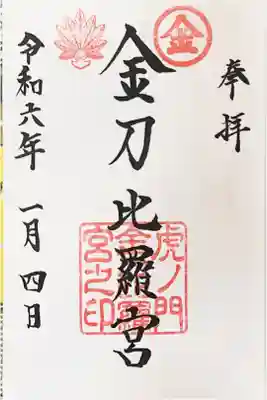 奉拝
金
金刀比羅宮
虎ノ門
金刀比羅
宮之印
令和六年 一月四日